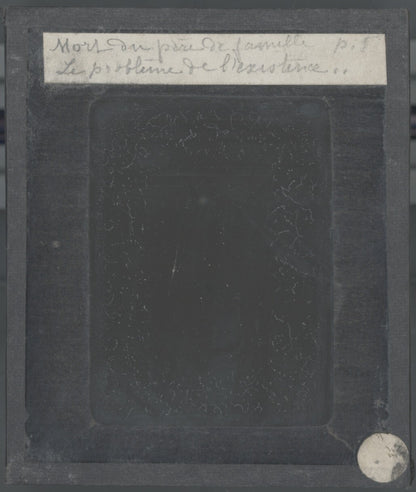 Mort du père de famille p. 8
Le problème de l'existence..